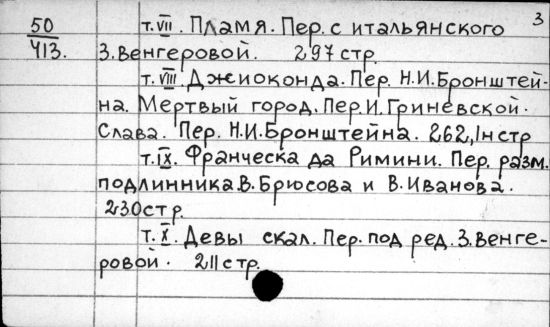 3
50
413.
т. VII. Пламя. Пер. с итальянского
З. Венгеровой. 297 стр.
т. VIII. Джиоконда. Пер. Н.И. Бронштей-
на. Мертвый город. Пер. И. Гриневской.
Слава. Пер. Н.И. Бронштейна. 262, 1н стр
т. IX. Франческа да Римини. Пер. разм.
подлинника В. Брюсова и В. Иванова.
230 стр.
т. X. Девы скал. Пер. под ред. З. Венге-
ровой. 211 стр.